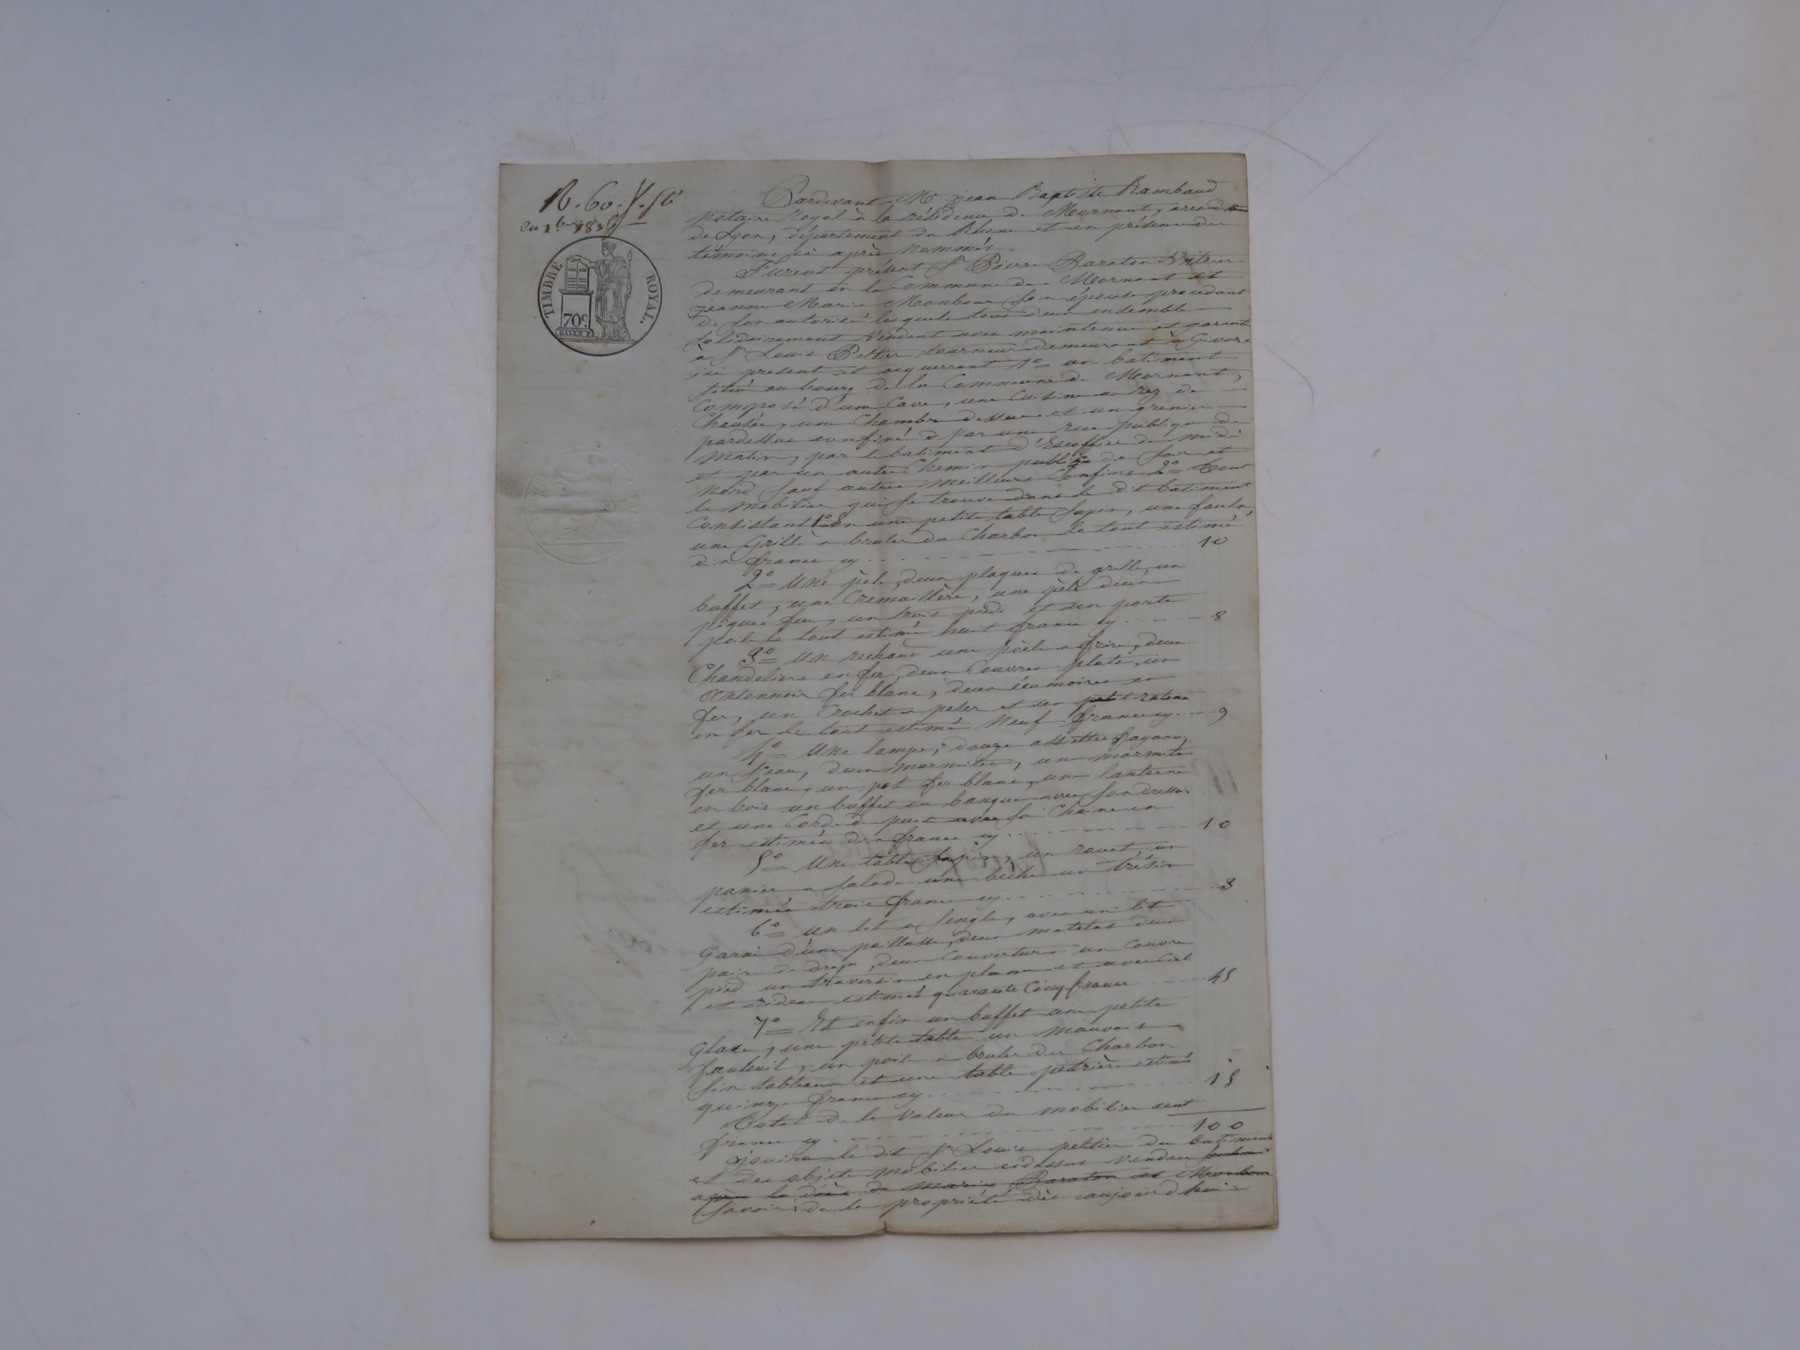 R. 60.
TIMBRE ROYAL.
70c
Pardevant Me jean Baptiste Rambaud
notaire Royal à la résidence de Mornant, arrond
de Lyon, département du Rhone et en présence des
témoins ci après nommés
Furent présent Sr Pierre Baraton Vitrier
demeurant en la Commune de Mornant et
jeanne Marie Monbour son épouse procedant
de son autorité lesquels tous deux ensemble
solidairement Vendent avec maintenue et garantie
à Sr Louis Peltier tourneur demeurant à Givors
ici present et acquerrant 1o un batiment
situé au bourg de la Commune de Mornant,
Composé d'une Cave, une Cuisine au rez de
Chaussée, une Chambre dessus et un grenier
pardessus confiné par une rue publique de
matin, par le batiment d'Escoffier de midi
et par un autre Chemin public de soir et
Nord sauf autres meilleurs Confins 2o tout
le mobilier qui se trouve dans le dit batiment
Consistant 1o en une petite table sapin, une
une Grille a bruler du Charbon le tout estimé
dix francs cy 10
2o Une pèle, deux plaques de grille, un
buffet, une Cremaillère, une pèle deux
pique feu, un trois pieds et un porte
poile le tout estimé huit francs cy 8
3o Un rechaud une poële a frire, deux
Chandeliers en fer, deux Couvres plats, un
fer blanc, deux écumoires en
fer, un Crochet a peser et un petit
en fer le tout estimé Neuf francs cy 9
4o Une lampe, douze assiettes fayance,
un Seau, deux marmites, un marmite
fer blanc, un pot fer blanc, une lanterne
en bois un buffet ou banque avec son
et une Corde de puit avec sa Chaine en
fer estimés dix francs cy 10
5o Une table sapin, un rouet, un
panier a salade une bèche un
estimés trois francs cy 3
6o Un lit a Sangle, avec un lit
Garni d'une paillasse, deux matelas deux
pair de draps, deux Couvertures un Couvre
pied un traversin en plume et avec Ciel
et rideau estimés quarante Cinq francs 45
7o Et enfin un buffet une petite
Glace, une petite table un mauvais
fauteuil, un poile a bruler du Charbon
Six tableaux et une table petrière estimés
quinze francs cy 15
Total de la Valeur du mobilier cent
francs cy 100
jouira le dit Sr Louis peltier du batiment
et des objets mobilier cidessus Vendu
après le décès de Baraton et Monbour
Savoir: de la propriété dès aujourd'hui